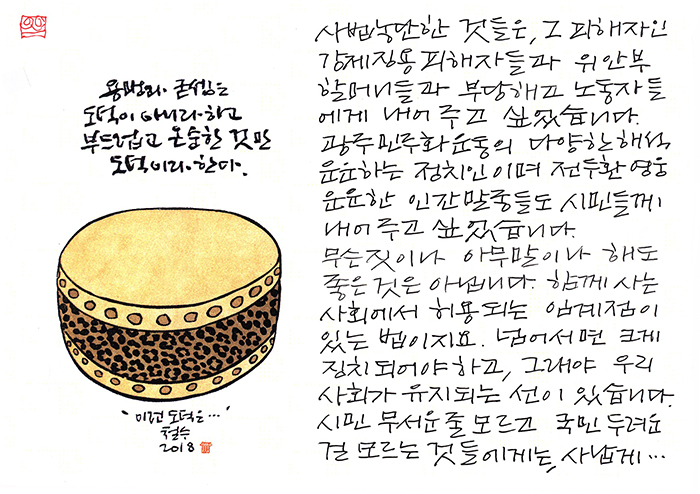 용맹과 굳셈는
도덕이 아니라 하고
부드럽고 온순한 것만
도덕이라 한다.
"이런 도덕은…"
철수
2018
사법농단한 것들은, 그 피해자인
강제징용 피해자들과 위안부
할머니들과 부당해고 노동자들
에게 내어 주고 싶었습니다.
광주민주화운동의 다양한 해석
운운하는 정치인이며 전두환 영웅
운운한 인간말종들도 시민들께
내어 주고 싶었습니다.
무슨짓이나 아무말이나 해도
좋은 것은 아닙니다. 함께 사는
사회에서 허용되는 임계점이
있는 법이지요. 넘어서면 크게
징치되어야 하고, 그래야 우리
사회가 유지되는 선이 있습니다.
시민 무서운 줄 모르고 국민 두려운
걸 모르는 것들에게는, 사납게…